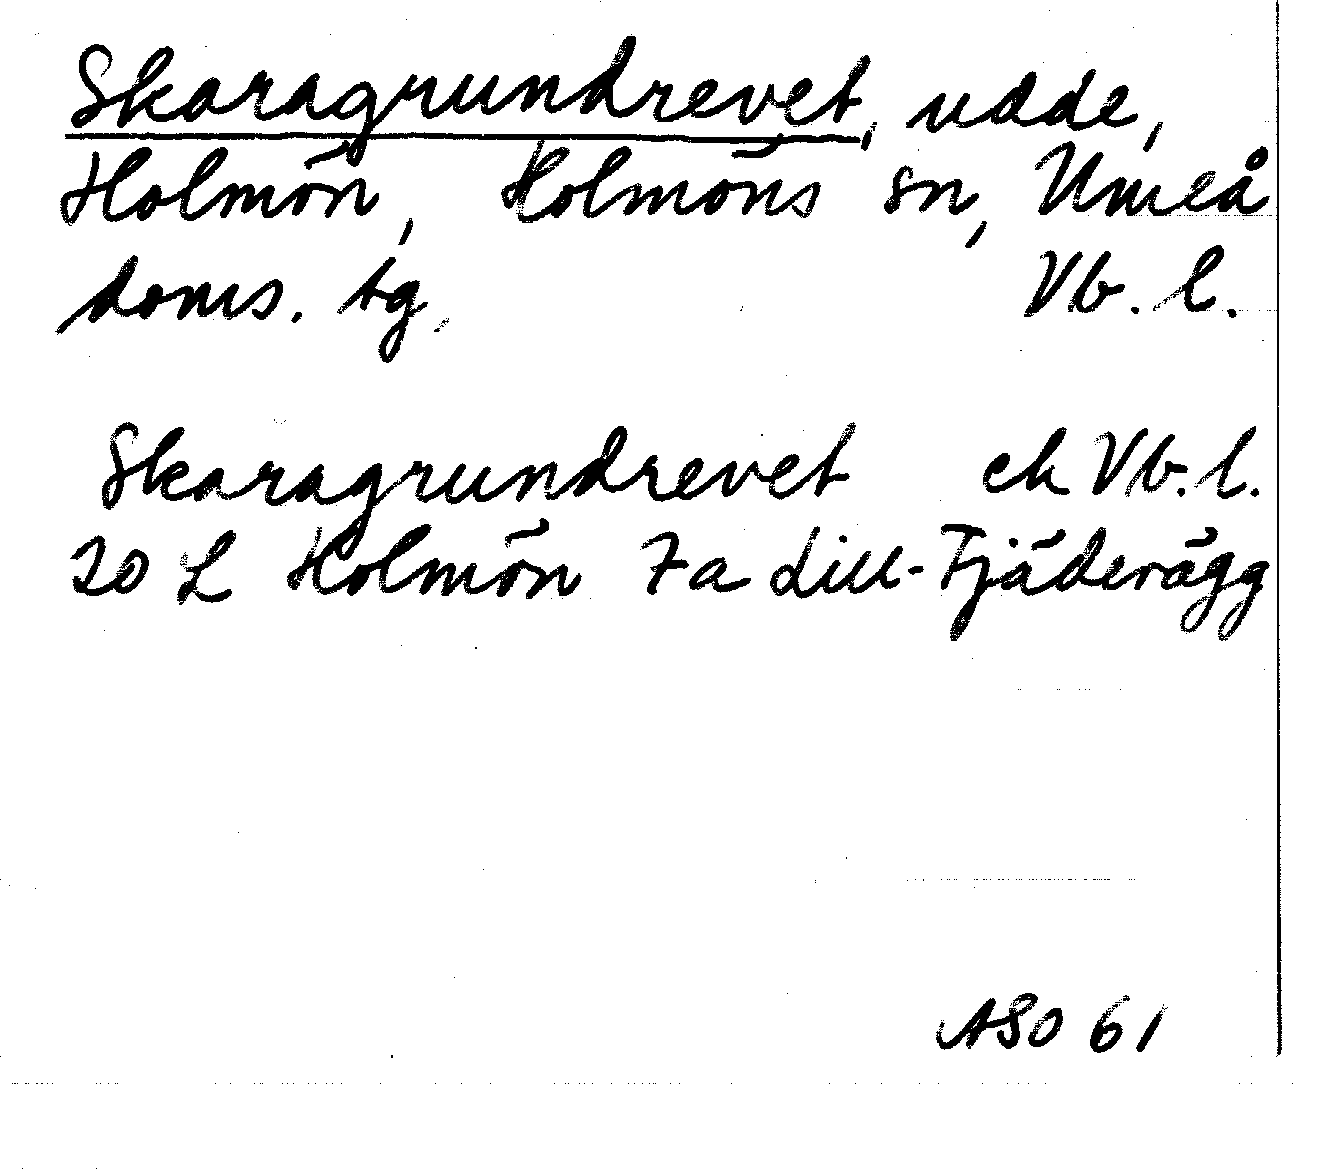 Skaragrundrevet, udde,
Holmön, Holmöns sn, Umeå
doms. tg, Vb. l.
Skaragrundrevet ek Vb. l.
20 L Holmön 7a Lill-Fjäderägg
ASO 61